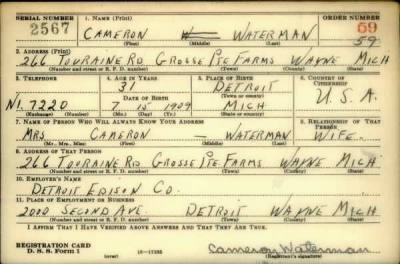 SERIAL NUMBER 1. NAME (Print) ORDER NUMBER
2567 CAMERON — WATERMAN 59
(First) (Middle) (Last) 59
2. ADDRESS (Print)
266 TOURAINE RD GROSSE PTE. FARMS WAYNE MICH
(Number and street or R. F. D. number) (Town) (County) (State)
3. TELEPHONE 4. AGE IN YEARS 5. PLACE OF BIRTH 6. COUNTRY OF CITIZENSHIP
31 DETROIT
DATE OF BIRTH (Town or county) U.S.A.
NI. 7220 7 15 1909 MICH
(Exchange) (Number) (Mo.) (Day) (Yr.) (State or country)
7. NAME OF PERSON WHO WILL ALWAYS KNOW YOUR ADDRESS 8. RELATIONSHIP OF THAT PERSON
MRS CAMERON — WATERMAN WIFE.
(Mr., Mrs., Miss) (First) (Middle) (Last)
9. ADDRESS OF THAT PERSON
266 TOURAINE RD GROSSE PTE. FARMS WAYNE MICH.
(Number and street or R. F. D. number) (Town) (County) (State)
10. EMPLOYER'S NAME
DETROIT EDISON CO.
11. PLACE OF EMPLOYMENT OR BUSINESS
2000 SECOND AVE DETROIT WAYNE MICH
(Number and street or R. F. D. number) (Town) (County) (State)
I AFFIRM THAT I HAVE VERIFIED ABOVE ANSWERS AND THAT THEY ARE TRUE.
REGISTRATION CARD
D. S. S. Form 1 (over) Cameron Waterman
(Registrant's signature)